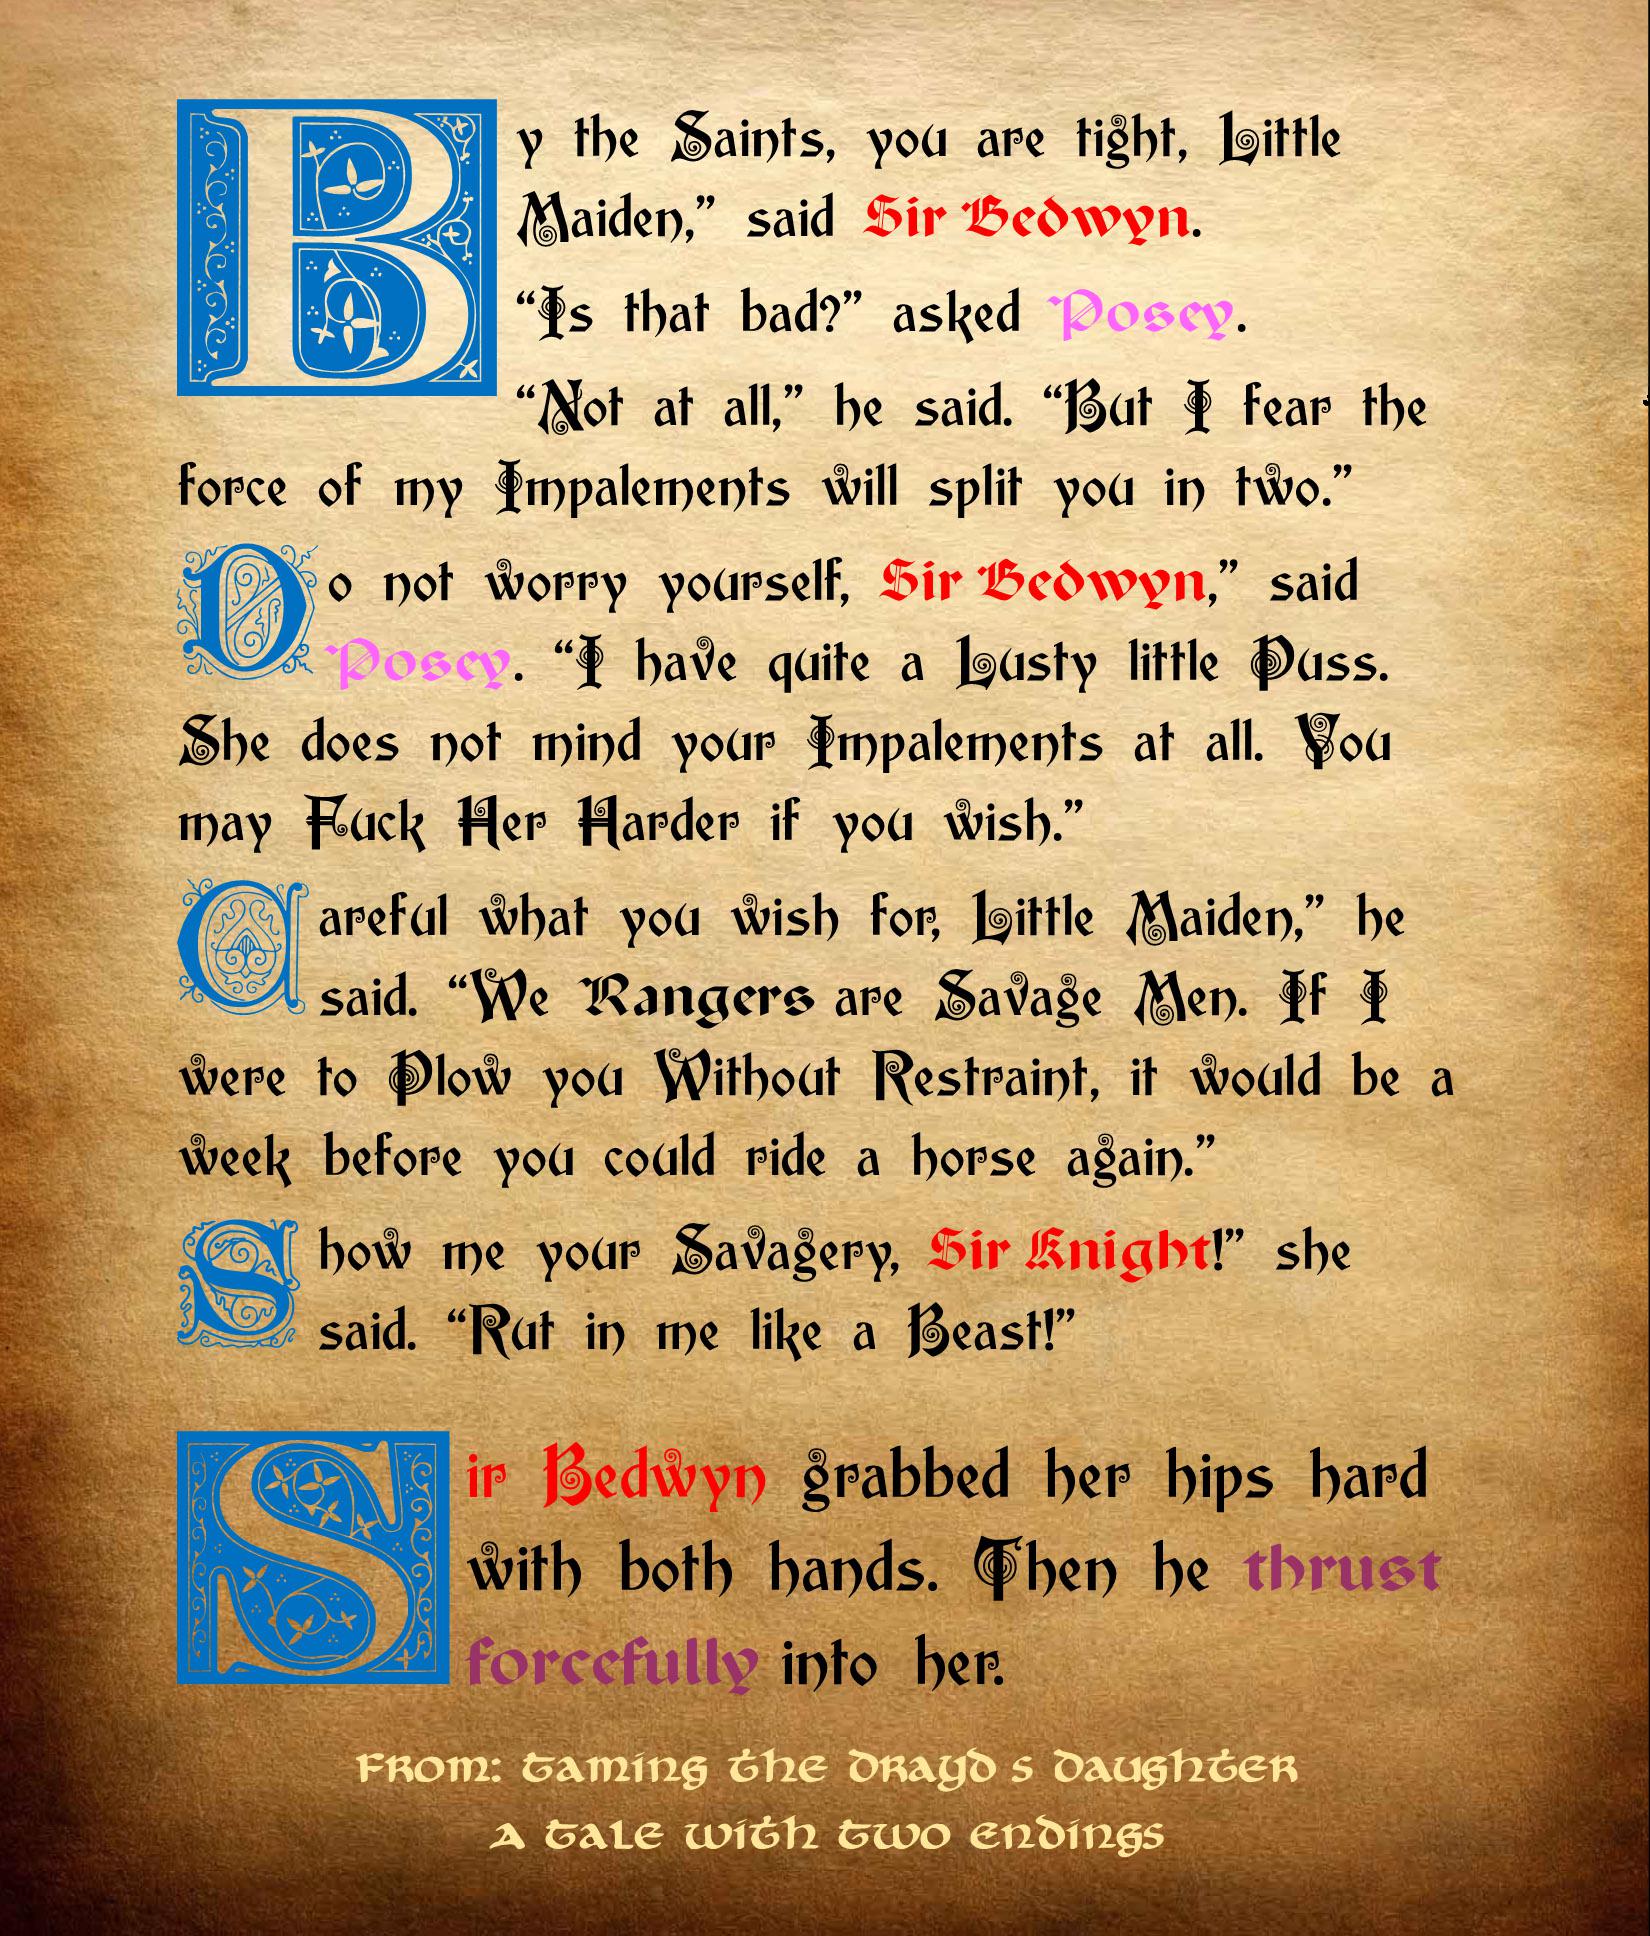 By the Saints, you are tight, Little
Maiden,” said Sir Bedwyn.
“Is that bad?” asked Posey.
“Not at all,” he said. “But I fear the
force of my Impalements will split you in two.”
Do not worry yourself, Sir Bedwyn,” said
Posey. “I have quite a Lusty little Puss.
She does not mind your Impalements at all. You
may Fuck Her Harder if you wish.”
Careful what you wish for, Little Maiden,” he
said. “We Rangers are Savage Men. If I
were to Plow you Without Restraint, it would be a
week before you could ride a horse again.”
Show me your Savagery, Sir Knight!” she
said. “Rut in me like a Beast!”
Sir Bedwyn grabbed her hips hard
with both hands. Then he thrust
forcefully into her.
From: Taming the Drayd s Daughter
A Tale with Two Endings